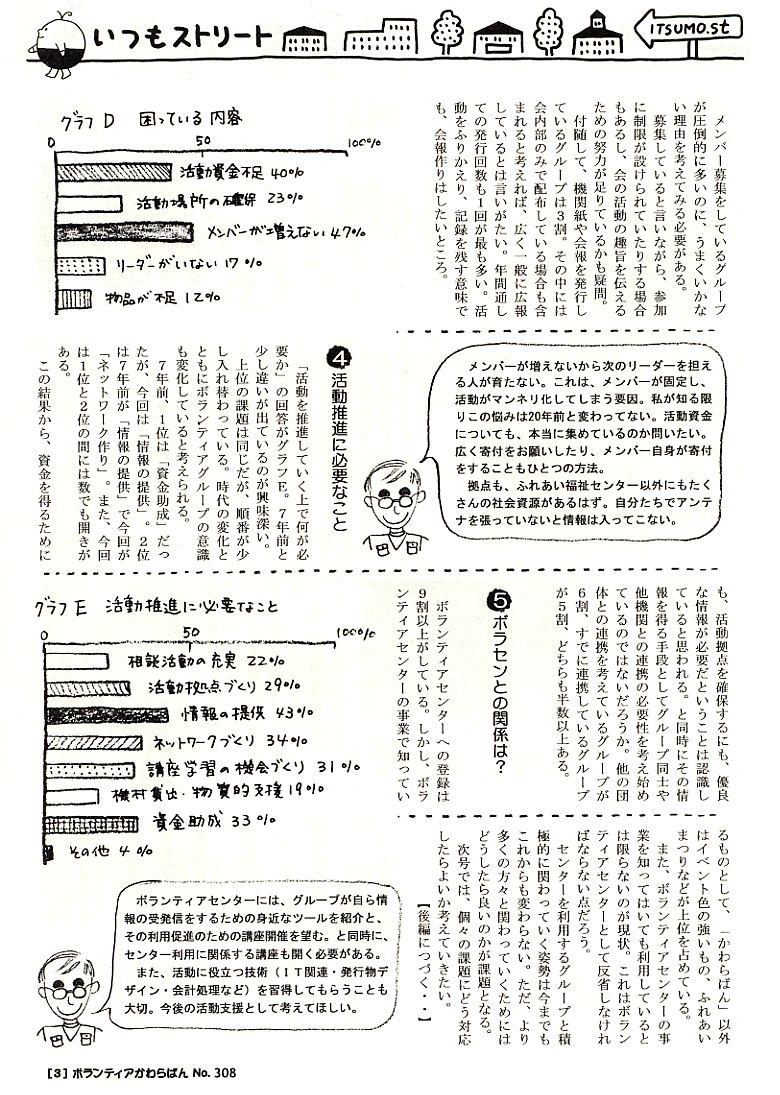 いつもストリート
ITSUMO.st
メンバー募集をしているグループ
が圧倒的に多いのに、うまくいかな
い理由を考えてみる必要がある。
募集していると言いながら、参加
に制限が設けられていたりする場合
もあるし、会の活動の趣旨を伝える
ための努力が足りているかも疑問。
付随して、機関紙や会報を発行し
ているグループは3割。その中には
会内部のみで配布している場合も含
まれると考えれば、広く一般に広報
しているとは言いがたい。年間通し
ての発行回数も1回が最も多い。活
動をふりかえり、記録を残す意味で
も、会報作りはしたいところ。
グラフD 困っている内容
0 50 100%
活動資金不足 40%
活動場所の確保 23%
メンバーが増えない 47%
リーダーがいない 17%
物品が不足 12%
メンバーが増えないから次のリーダーを担え
る人が育たない。これは、メンバーが固定し、
活動がマンネリ化してしまう要因。私が知る限
りこの悩みは20年前と変わってない。活動資金
についても、本当に集めているのか問いたい。
広く寄付をお願いしたり、メンバー自身が寄付
をすることもひとつの方法。
拠点も、ふれあい福祉センター以外にもたく
さんの社会資源があるはず。自分たちでアンテ
ナを張っていないと情報は入ってこない。
❹活動推進に必要なこと
「活動を推進していく上で何が必
要か」の回答がグラフE。7年前と
少し違いが出ているのが興味深い。
上位の課題は同じだが、順番が少
し入れ替わっている。時代の変化と
ともにボランティアグループの意識
も変化していると考えられる。
7年前、1位は「資金助成」だっ
たが、今回は「情報の提供」。2位
は7年前が「情報の提供」で今回が
「ネットワーク作り」。また、今回
は1位と2位の間には数でも開きが
ある。
この結果から、資金を得るために
も、活動拠点を確保するにも、優良
な情報が必要だということは認識し
ていると思われる。と同時にその情
報を得る手段としてグループ同士や
他機関との連携の必要性を考え始め
ているのではないだろうか。他の団
体との連携を考えているグループが
6割、すでに連携しているグループ
が5割、どちらも半数以上ある。
❺ボラセンとの関係は?
ボランティアセンターへの登録は
9割以上がしている。しかし、ボラ
ンティアセンターの事業で知ってい
グラフE 活動推進に必要なこと
0 50 100%
相談活動の充実 22%
活動拠点づくり 29%
情報の提供 43%
ネットワークづくり 34%
講座学習の機会づくり 31%
機材貸出・物質的支援 19%
資金助成 33%
その他 4%
るものとして、「かわらばん」以外
はイベント色の強いもの、ふれあい
まつりなどが上位を占めている。
また、ボランティアセンターの事
業を知ってはいても利用していると
は限らないのが現状。これはボラン
ティアセンターとして反省しなけれ
ばならない点だろう。
センターを利用するグループと積
極的に関わっていく姿勢は今までも
これからも変わらない。ただ、より
多くの方々と関わっていくためには
どうしたら良いのかが課題となる。
次号では、個々の課題にどう対応
したらよいか考えていきたい。
【後編につづく・・】
ボランティアセンターには、グループが自ら情
報の受発信をするための身近なツールを紹介と、
その利用促進のための講座開催を望む。と同時に、
センター利用に関係する講座も開く必要がある。
また、活動に役立つ技術（IT関連・発行物デ
ザイン・会計処理など）を習得してもらうことも
大切。今後の活動支援として考えてほしい。
[3] ボランティアかわらばん No. 308